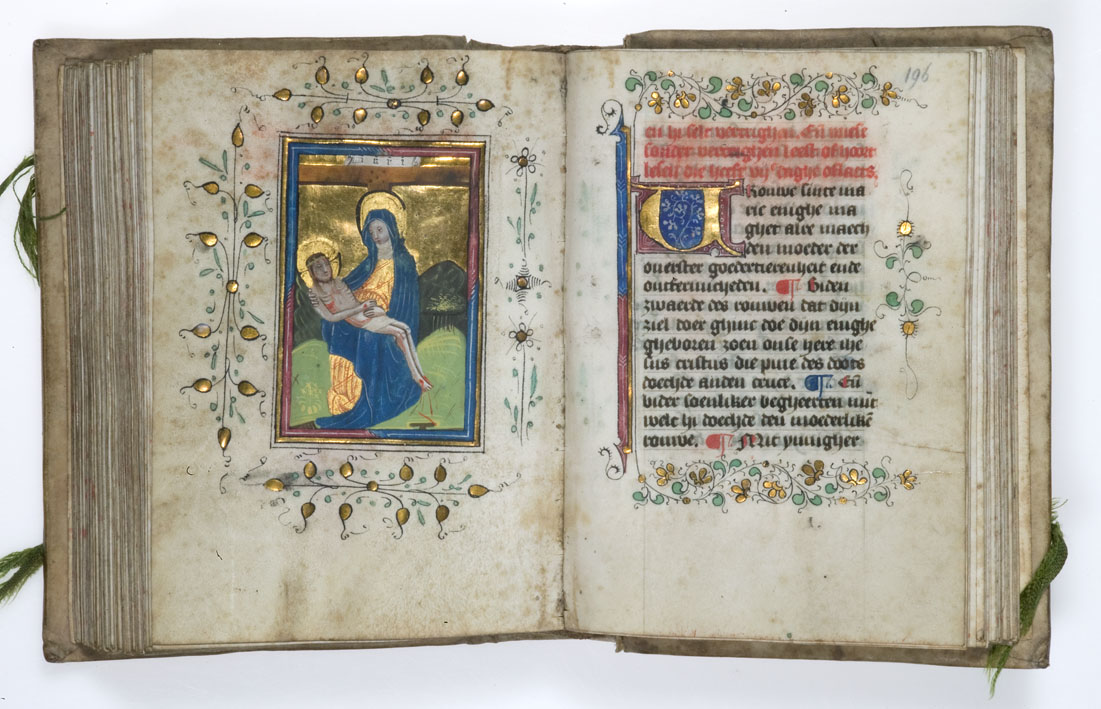 196
en hi selt vercrighen. Eñ wiese
sonder vercrighen leest of hoort
lesen die heeft vij daghe oflaets.
Vrouwe sinte ma
rie ewighe ma
ghet alre maech
den moeder der
ouerster goedertierenheit ende
ontfermicheden. ¶ Biden
zwaerde des rouwen dat dijn
ziel doer ghinc doe dijn enighe
gheboren zoen onse here ihe
sus cristus die pine des doots
doechde anden cruce. ¶ Eñ
bider soenliker begheerten mit
welc hi doechde den moederlikē
rouwe. ¶ Mit ynnigher